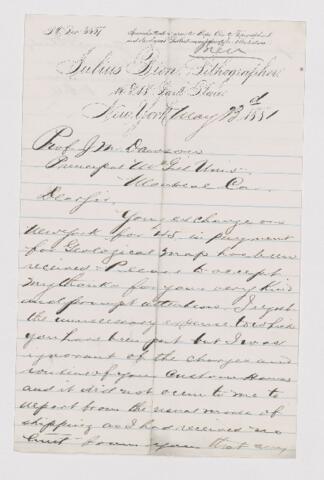 Julius Bien, Lithographer
New York, May 23d 1881
Prof J. W. Dawson
Principal McGill Univ.
Montreal Ca.
Dear Sir,
Your exchange on
New York for 45. in payment
for Geological map has been
received & Please to accept
my thanks for your very kind
and prompt attention. I regret
the unnecessary expense to which
you have been put but I was
ignorant of the charges and
routine of your Custom House
and it did not occur to me to
depart from the usual mode of
shipping as I had received no
from you that any